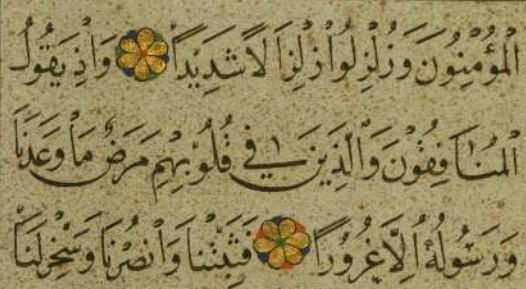 الْمُؤْمِنُونَ وَزُلْزِلُوا زِلْزَالًا شَدِيدًا وَاِذْ يَقُولُ
الْمُنَافِقُونَ وَالَّذِينَ فِي قُلُوبِهِمْ مَرَضٌ مَا وَعَدَنَا
وَرَسُولُهُ اِلَّا غُرُورًا فَثَبِّتْنَا وَانْصُرْنَا وَسَخِّرْ لَنَا